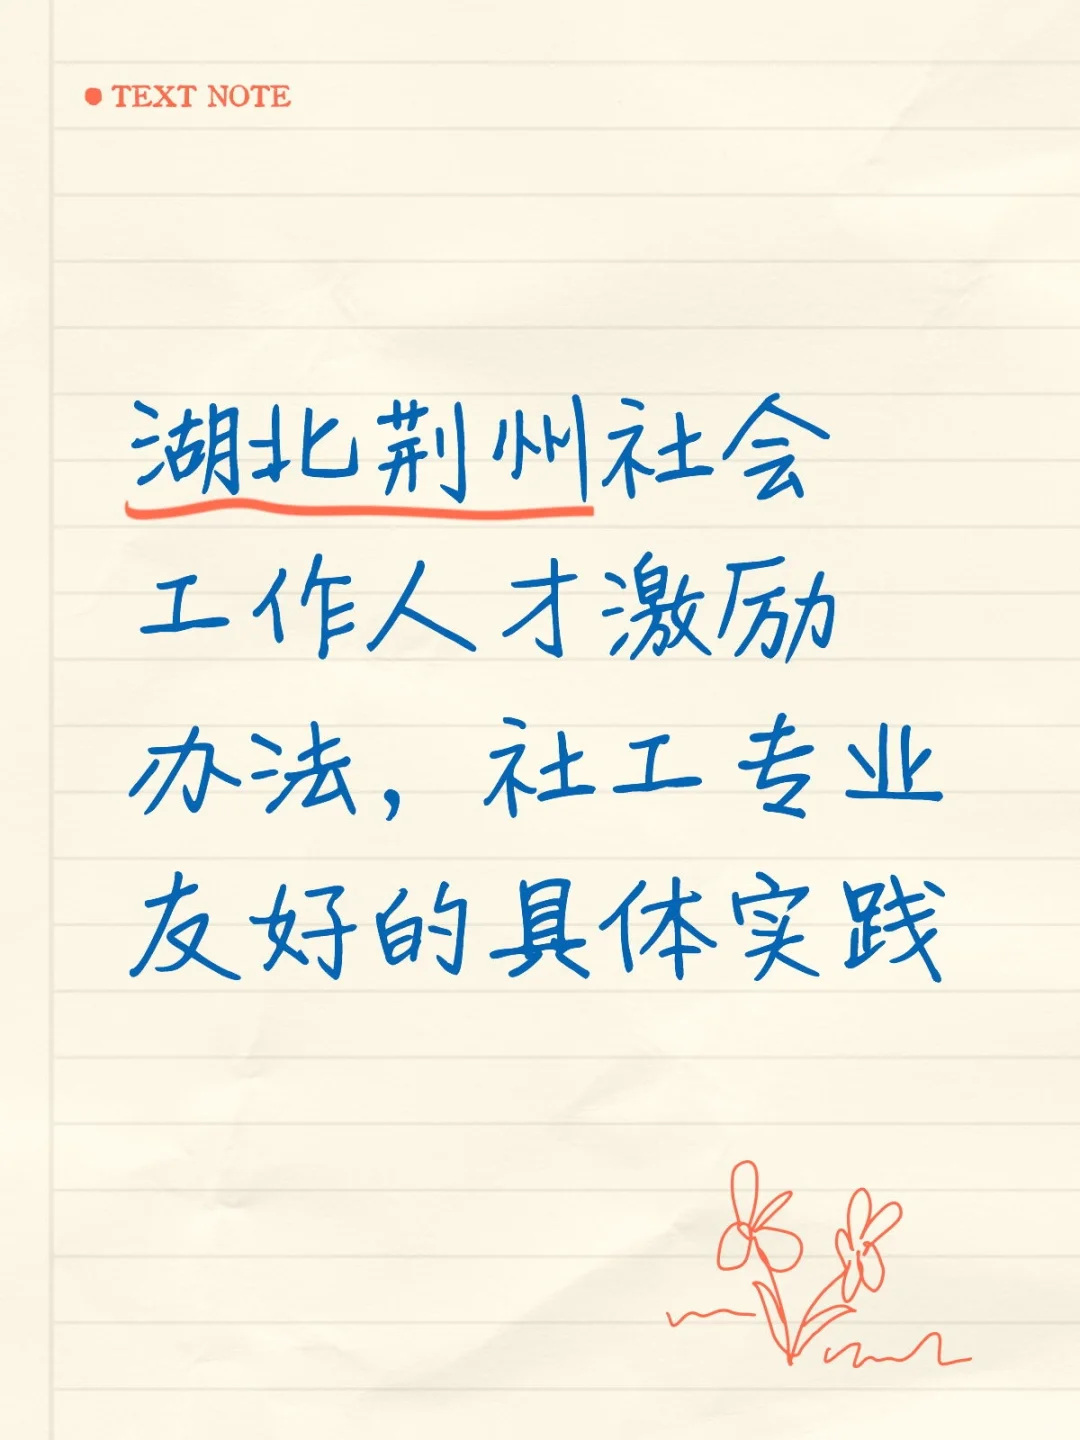 TEXT NOTE
湖北荆州社会
工作人才激励
办法，社工专业
友好的具体实践